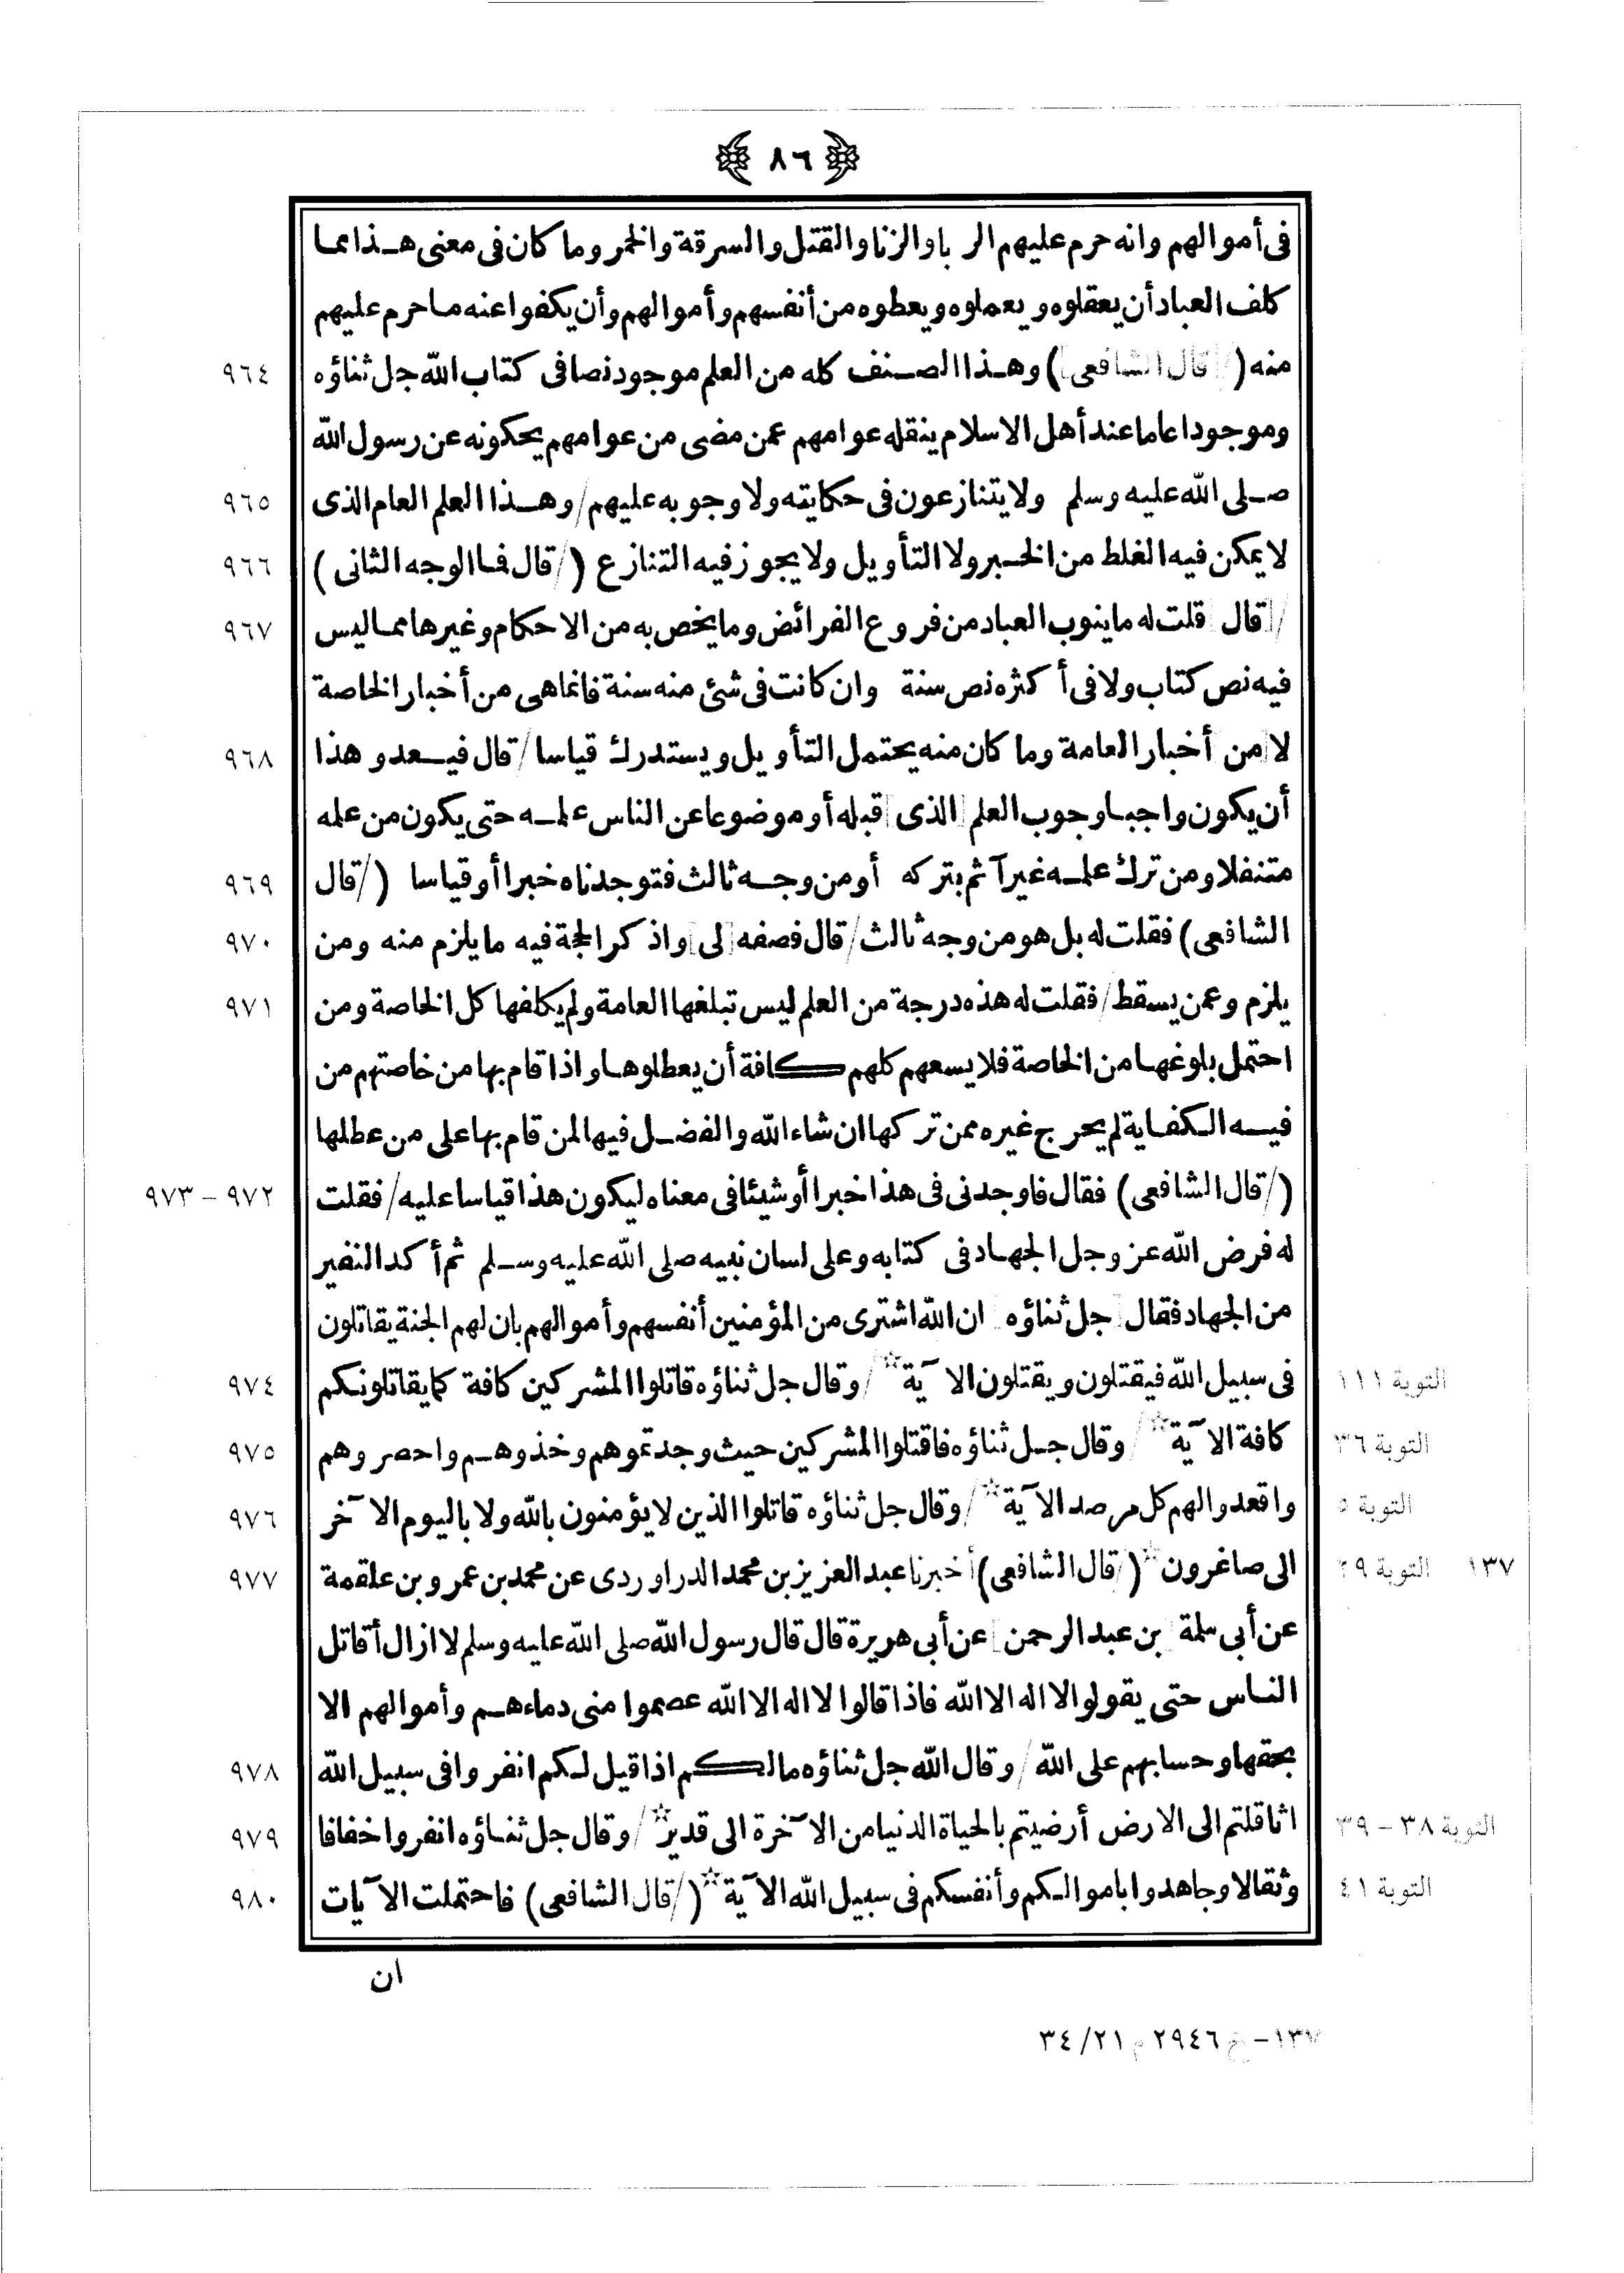 ٨٦
فى أموالهم وانه حرم عليهم الربا والزنا والقتل والسرقة والخمر وما كان فى معنى هذا مما
كلف العباد أن يعقلوه ويعملوه ويعطوه من أنفسهم وأموالهم وأن يكفوا عنه ما حرم عليهم
٩٦٤ منه (/ قال الشافعى) وهذا الصنف كله من العلم موجود نصا فى كتاب الله جل ثناؤه
وموجودا عاما عند أهل الاسلام ينقله عوامهم عمن مضى من عوامهم يحكونه عن رسول الله
٩٦٥ صلى الله عليه وسلم ولا يتنازعون فى حكايته ولا وجوبه عليهم / وهذا العلم العام الذى
٩٦٦ لا يمكن فيه الغلط من الخبر ولا التأويل ولا يجوز فيه التنازع (/ قال فما الوجه الثانى)
٩٦٧ / قال قلت له ما ينوب العباد من فروع الفرائض وما يخص به من الاحكام وغيرها مما ليس
فيه نص كتاب ولا فى أكثره نص سنة وان كانت فى شئ منه سنة فانما هى من أخبار الخاصة
٩٦٨ لا من أخبار العامة وما كان منه يحتمل التأويل ويستدرك قياسا / قال فيعدو هذا
أن يكون واجبا وجوب العلم الذى قبله أو موضوعا عن الناس علمه حتى يكون من علمه
٩٦٩ متنفلا ومن ترك علمه غير آثم بتركه أو من وجه ثالث فتوجدناه خبرا أو قياسا (/ قال
٩٧٠ الشافعى) فقلت له بل هو من وجه ثالث / قال فصفه لى واذكر الحجة فيه ما يلزم منه ومن
٩٧١ يلزم وعمن يسقط / فقلت له هذه درجة من العلم ليس تبلغها العامة ولم يكلفها كل الخاصة ومن
احتمل بلوغها من الخاصة فلا يسعهم كلهم كافة أن يعطلوها واذا قام بها من خاصتهم من
فيه الكفاية لم يحرج غيره ممن تركها ان شاء الله والفضل فيها لمن قام بها على من عطلها
٩٧٢ – ٩٧٣ (/ قال الشافعى) فقال فاوجدنى فى هذا خبرا أو شيئا فى معناه ليكون هذا قياسا عليه / فقلت
له فرض الله عز وجل الجهاد فى كتابه وعلى لسان نبيه صلى الله عليه وسلم ثم أكد النفير
من الجهاد فقال جل ثناؤه ان الله اشترى من المؤمنين أنفسهم وأموالهم بان لهم الجنة يقاتلون
التوبة ١١١ ٩٧٤ فى سبيل الله فيقتلون ويقتلون الآية* / وقال جل ثناؤه قاتلوا المشركين كافة كما يقاتلونكم
التوبة ٣٦ ٩٧٥ كافة الآية* / وقال جل ثناؤه فاقتلوا المشركين حيث وجدتموهم وخذوهم واحصروهم
التوبة ٥ ٩٧٦ واقعدوا لهم كل مرصد الآية* / وقال جل ثناؤه قاتلوا الذين لا يؤمنون بالله ولا باليوم الآخر
١٣٧ التوبة ٢٩ ٩٧٧ الى صاغرون* (/ قال الشافعى) أخبرنا عبد العزيز بن محمد الدراوردى عن محمد بن عمرو بن علقمة
عن أبى سلمة بن عبد الرحمن عن أبى هريرة قال قال رسول الله صلى الله عليه وسلم لا ازال أقاتل
الناس حتى يقولوا لا اله الا الله فاذا قالوا لا اله الا الله عصموا منى دماءهم وأموالهم الا
٩٧٨ بحقها وحسابهم على الله / وقال الله جل ثناؤه مالكم اذا قيل لكم انفروا فى سبيل الله
التوبة ٣٨ – ٣٩ ٩٧٩ اثاقلتم الى الارض أرضيتم بالحياة الدنيا من الآخرة الى قدير* / وقال جل ثناؤه انفروا خفافا
التوبة ٤١ ٩٨٠ وثقالا وجاهدوا باموالكم وأنفسكم فى سبيل الله الآية* (/ قال الشافعى) فاحتملت الآيات
ان
١٣٧ – خ ٢٩٤٦ م ٢١/٣٤